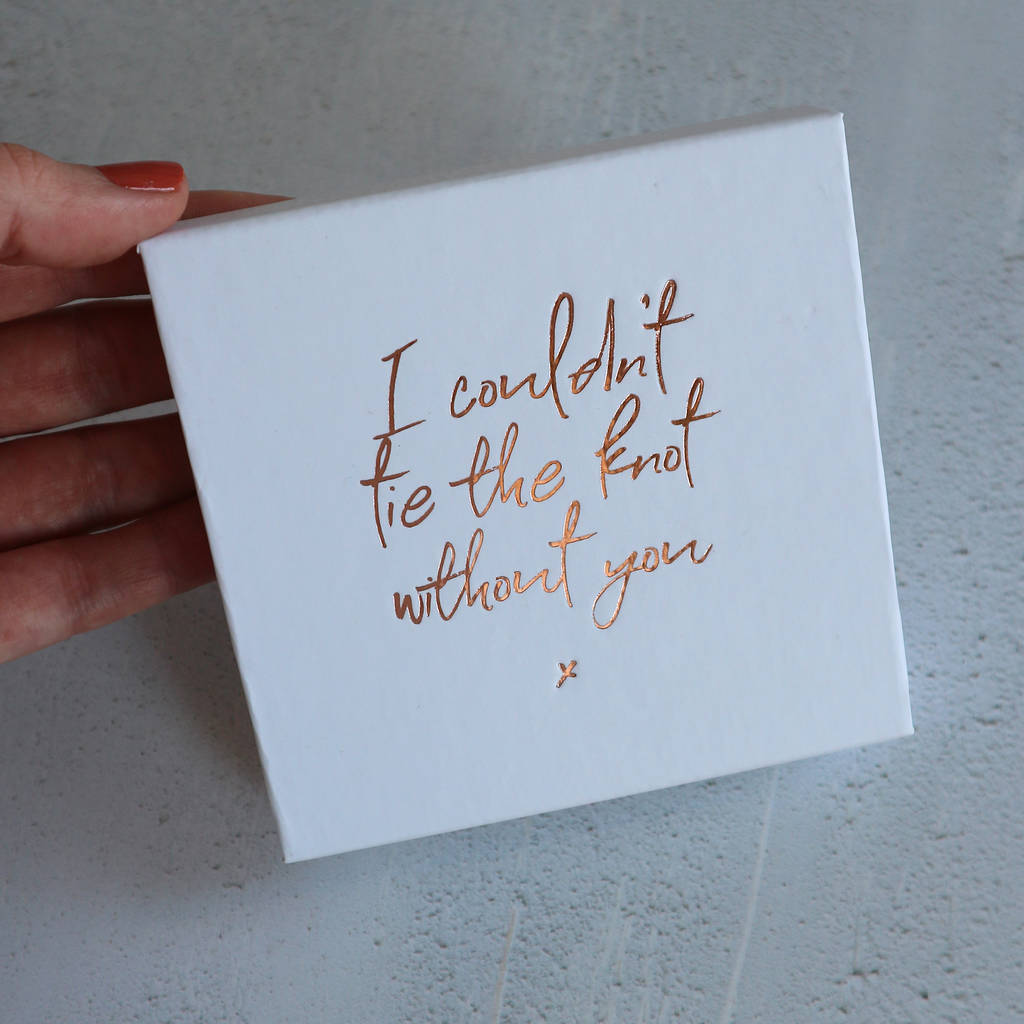 I couldn't
tie the knot
without you
x